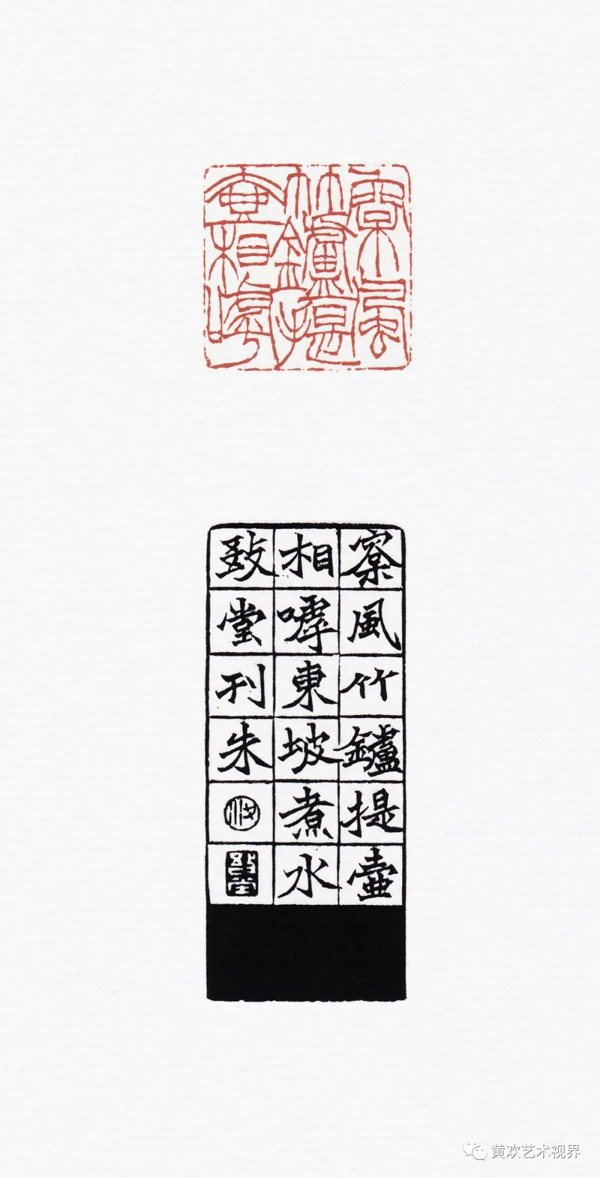 㮤風
竹鑪提
壺相嘑
㮤風竹鑪提壺
相嘑東坡煮水
致堂刊朱
黄欢艺术视界